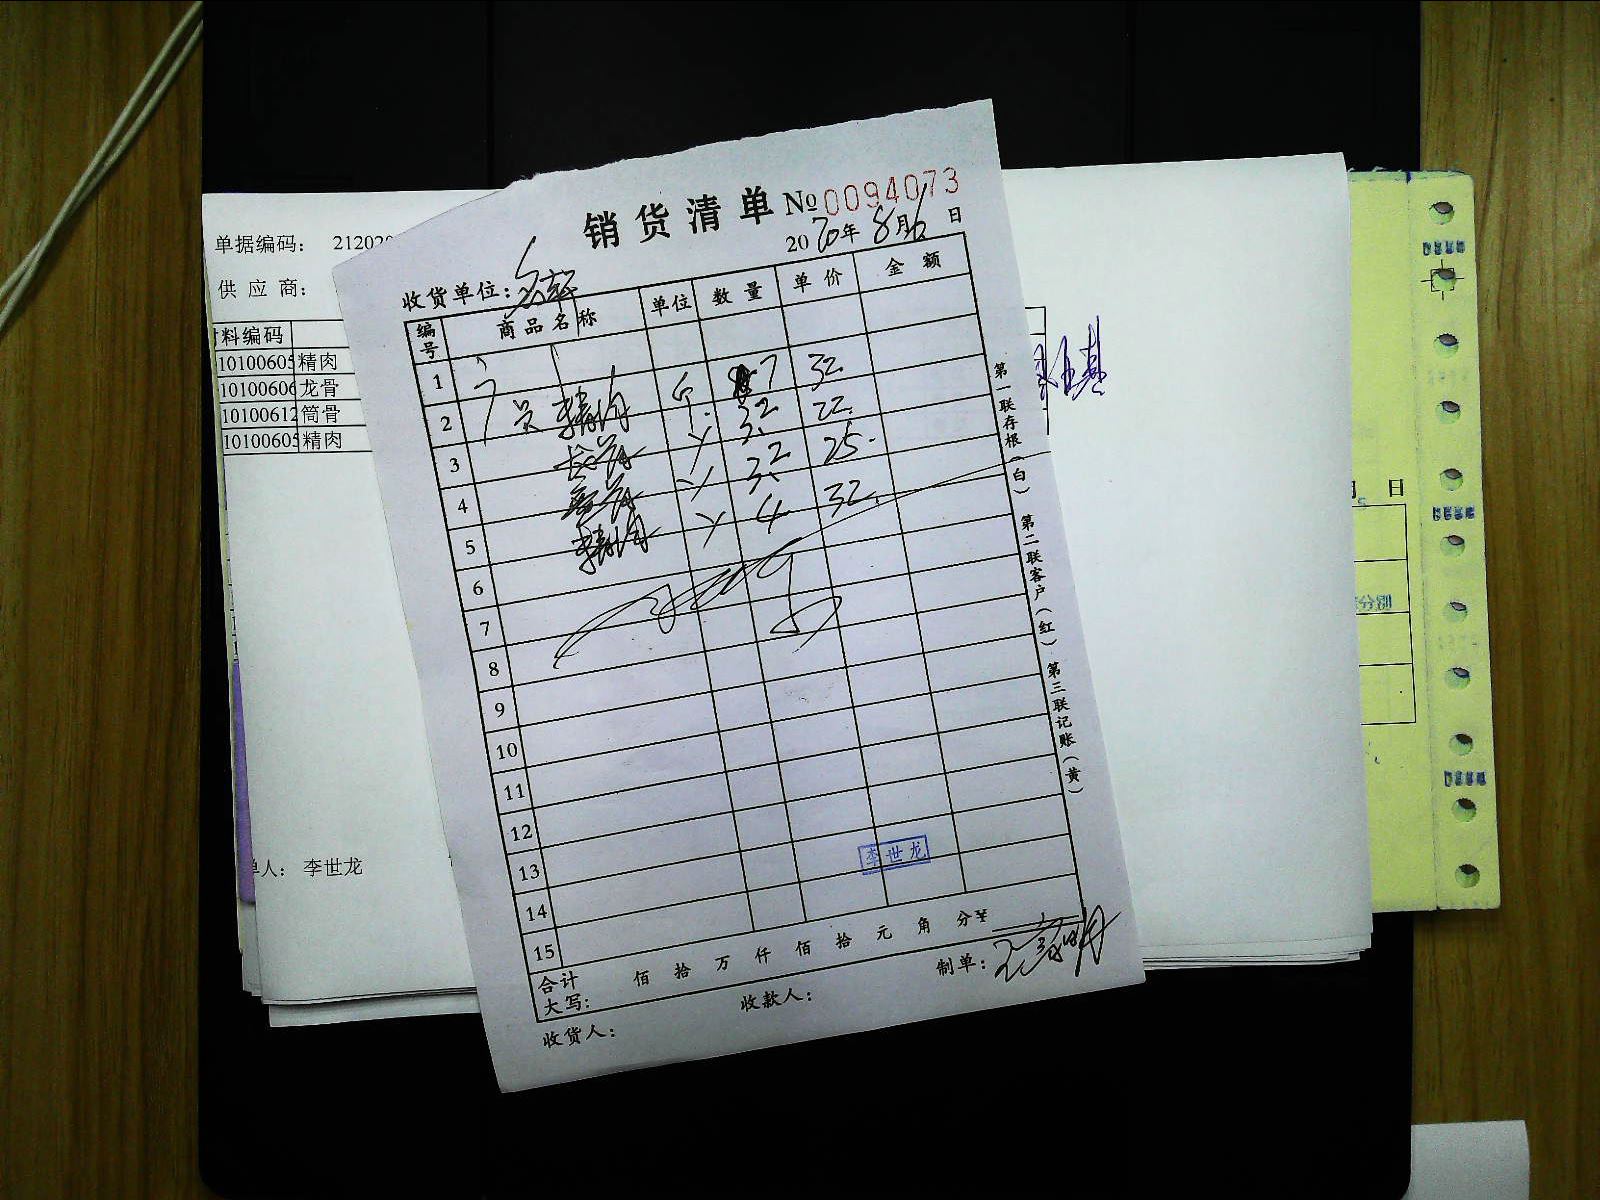 销货清单 № 0094073
2020年8月6日
收货单位：
编号 商品名称 单位 数量 单价 金额
1
2 精肉 7 32
3 32 22
4 32 25
5 精肉 4 32
6
7
8
9
10
11
12
13
14
15
李世龙
合计大写： 佰 拾 万 仟 佰 拾 元 角 分 ¥
制单：
收货人： 收款人：
第一联存根（白） 第二联客户（红） 第三联记账（黄）
单据编码： 212020
供应商：
料编码
10100605 精肉
10100606 龙骨
10100612 筒骨
10100605 精肉
单人： 李世龙
月 日